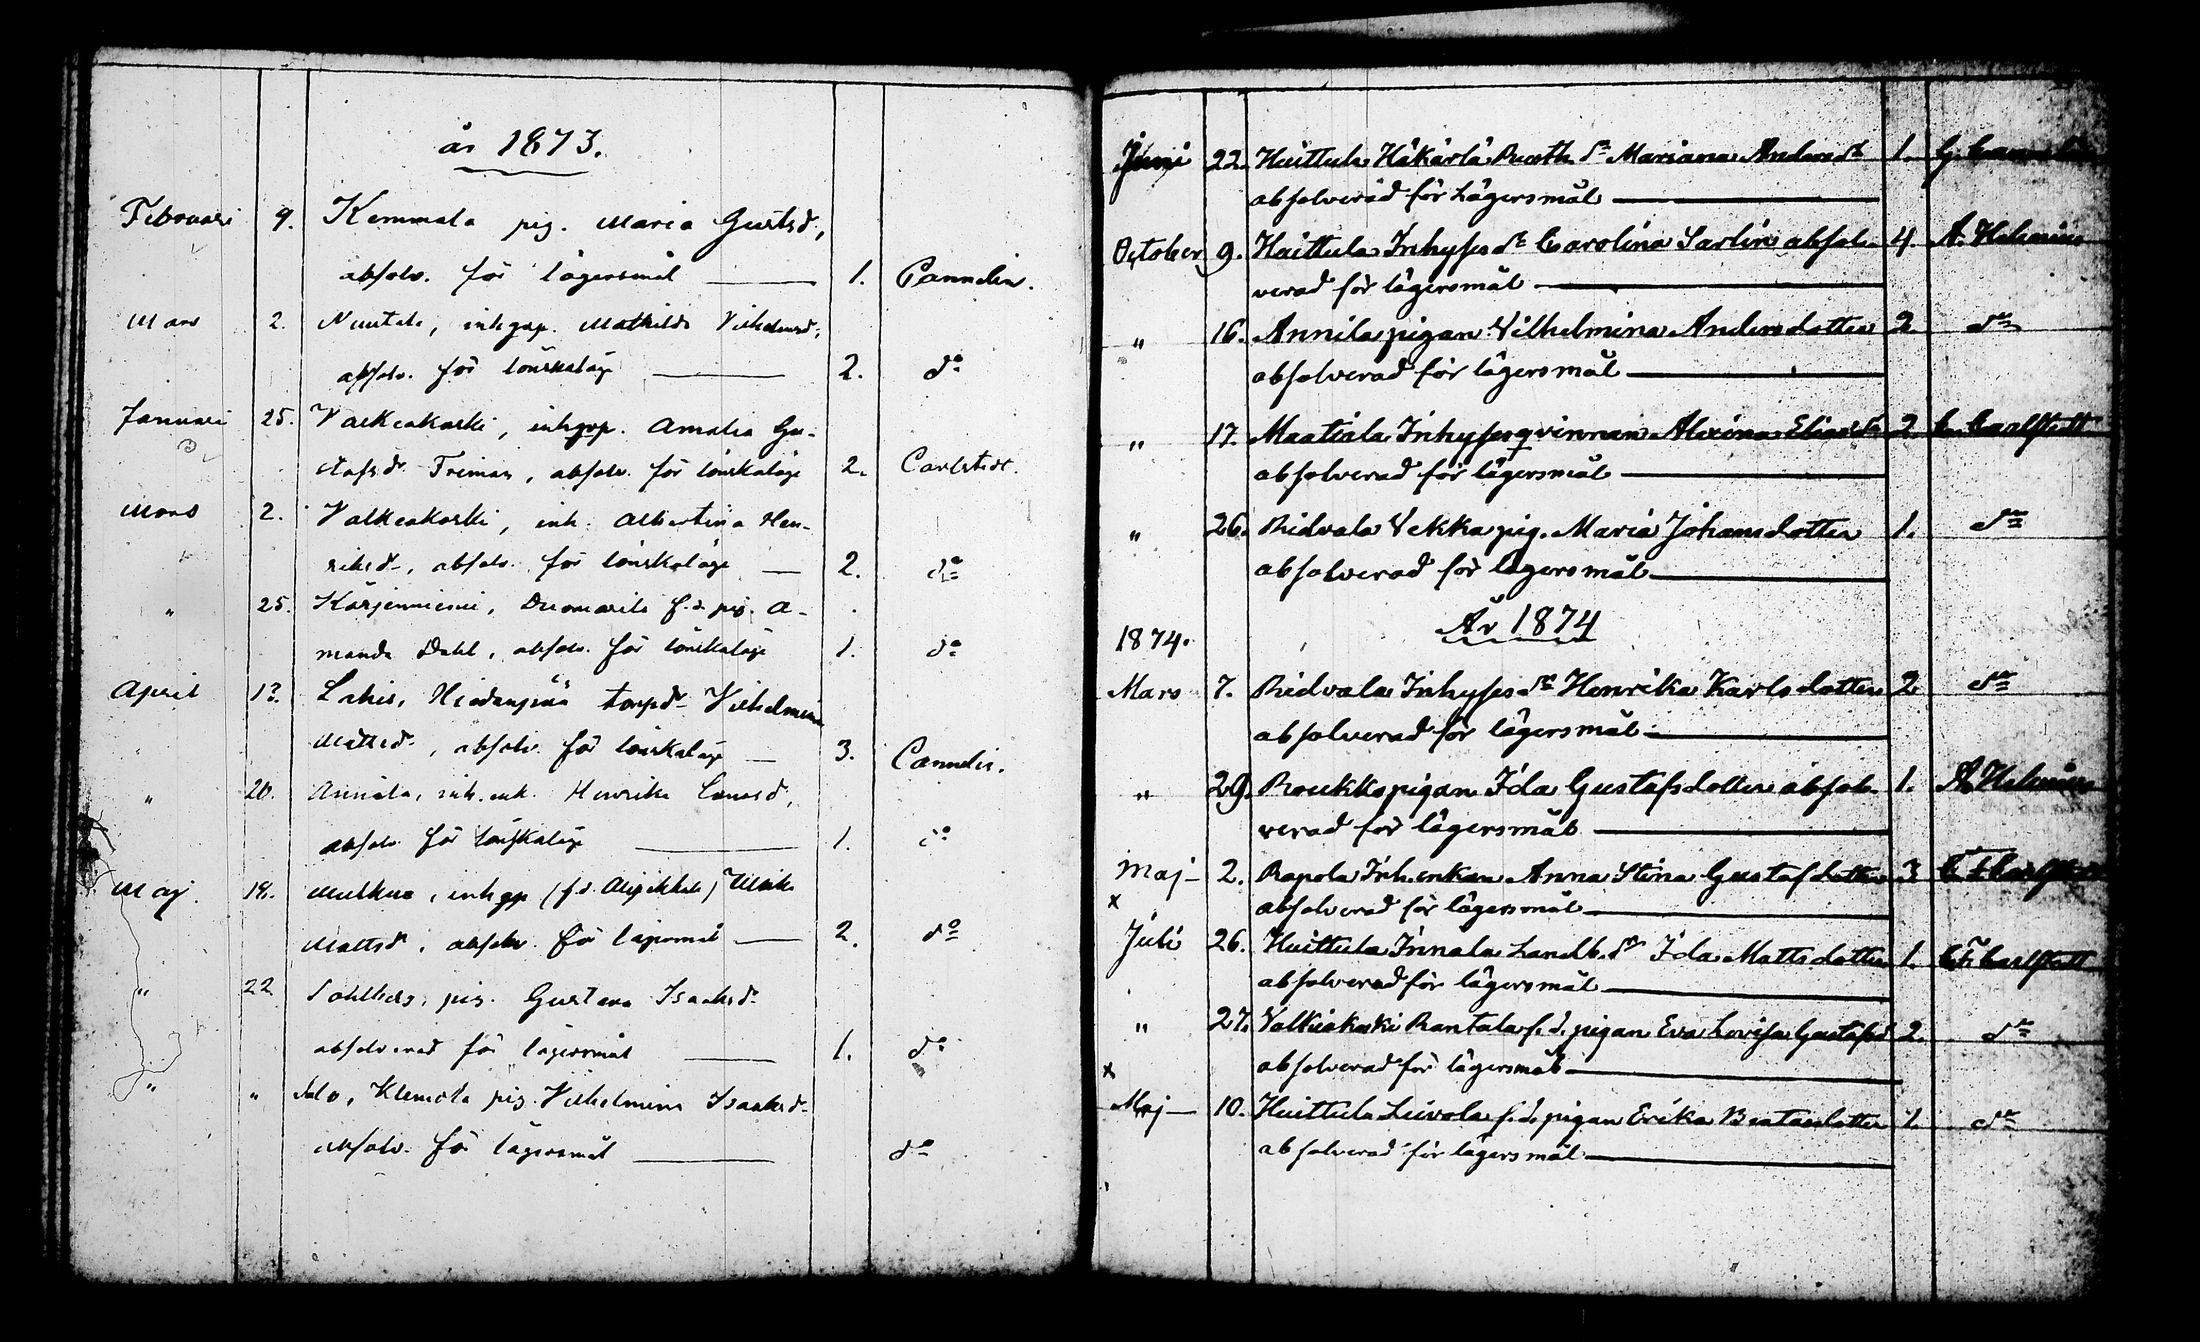 år 1873.
Februari 9. Kemmala pig. Maria Gustsd.,
absolv. för lägersmål 1. Canndin.
Mars 2. inhysp. Mathilda Vilhelmsd.,
absolv. för lönskaläge 2. do
Januari 25. Valkeakoski, inhysp. Amalia Gu-
stafsd. , absolv. för lönskaläge 2. Carlstedt.
Mars 2. Valkeakoski, inh. Albertina Hen-
riksd., absolv. för lönskaläge 2. do
" 25. Karjenniemi, f.d. pig. A-
manda Dahl, absolv. för lönskaläge 1. do
April 12. torpd. Vilhelmina
Mattsd., absolv. för lönskaläge 3. Canndin.
" 20. Annila, inh.enk. Henrika
absolv. för lönskaläge 1. do
Maj. 18. (f.d. ) Ulrika
Mattsd, absolv. för lägersmål 2. do
" 22 pig. Gustava Isaaksd.
absolverad för lägersmål 1. do
" " Salo, Klemola pig. Vilhelmina Isaaksd.
absolv. för lägersmål do
Juni 22. Huittula Häkärlä dr Mariana Andersdr 1.
absolverad för Lägersmål
October 9. Huittula Inhyses dr Carolina Sarlin absol- 4. A. Helenius
verad för lägersmål
" 16. Annila pigan Vilhelmina Andersdotter 2 do
absolverad för lägersmål
" 17. Maatiala Inhyses qvinnan Alexina Eliasdr 2. C. Carlstedt
absolverad för lägersmål
" 26. Ridvala Vekka pig. Maria Johansdotter 1. do
absolverad för lägersmål
År 1874
1874.
Mars 7. Ridvala Inhyses dr Henrika Karlsdotter 2 do
absolverad för lägersmål
" 29. Roukko pigan Ida Gustafsdotter absol- 1. A. Helenius
verad för lägersmål
Maj 2. Rapola Inh.enkan Anna Stina Gustafsdotter 3
x absolverad för lägersmål
Juli 26. Huittula Innala Landb. dr Ida Mattsdotter 1. C.F. Carlstedt
absolverad för lägersmål
" 27. Valkiakoski Rantala f.d. pigan Eva Lovisa Gustafsd 2. do
x absolverad för lägersmål
Maj 10. Huittula Leivola f.d. pigan Erika Beatasdotter 1. do
absolverad för lägersmål